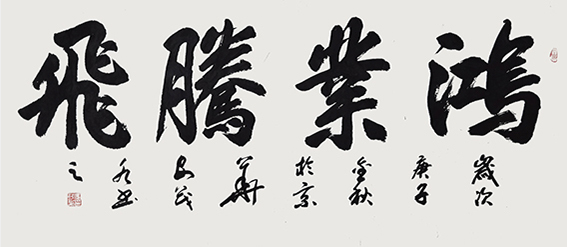 鴻業騰飛
歲次
庚子
金秋
於京
華
之